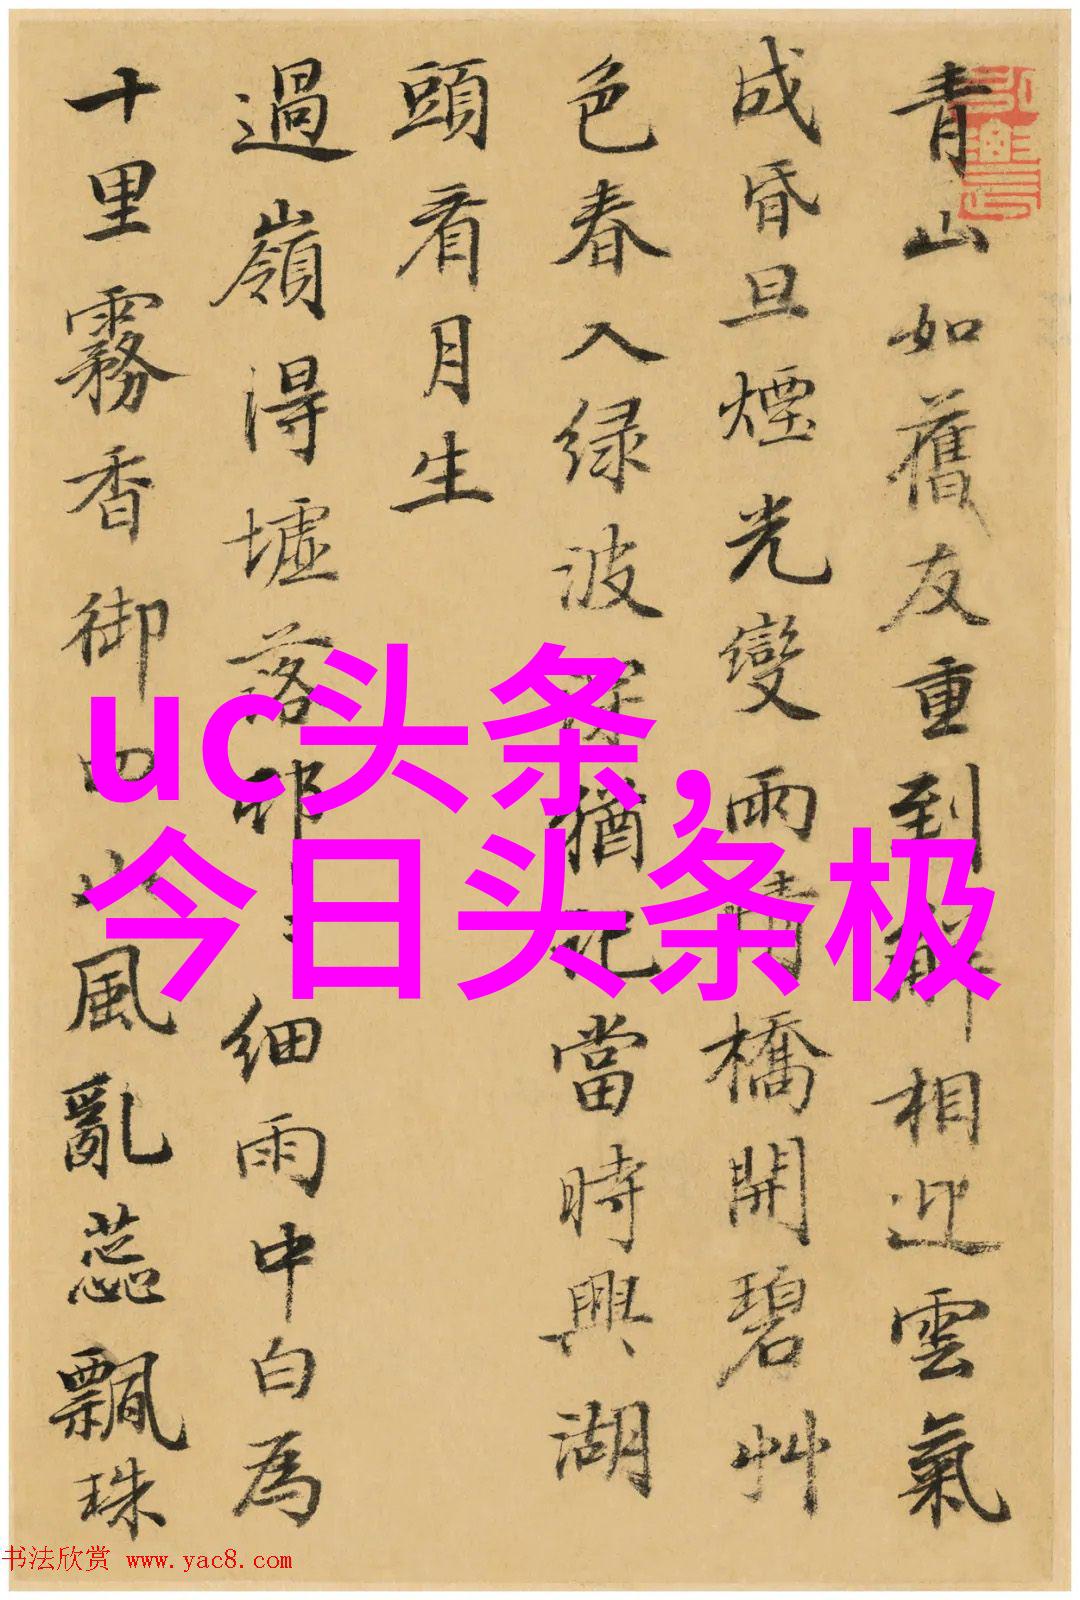 青山如舊友重到解相迎雲氣
成昏旦煙光變雨晴橋開碧艸
色春入绿波深猶記當時興湖
頭看月生
過嶺得墟落邨細雨中白為
十里霧香御四山風亂蕊飄珠
uc头条,
今日头条极
书法欣赏 www.yac8.com